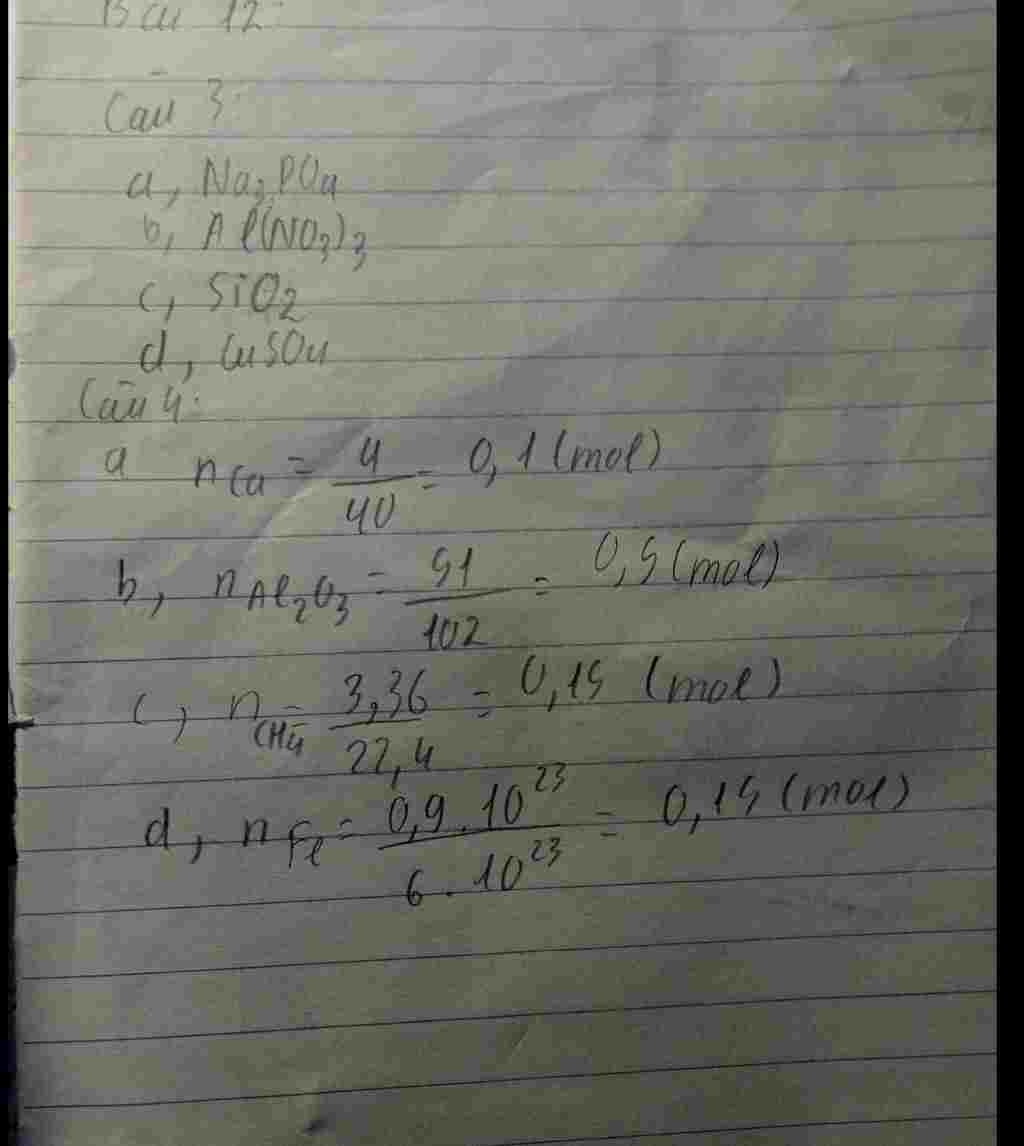 Bài 12:
Câu 3:
a, Na₃PO₄
b, Al(NO₃)₃
c, SiO₂
d, CuSO₄
Câu 4:
a n Ca = 4/40 = 0,1 (mol)
b, n Al₂O₃ = 51/102 = 0,5 (mol)
c, n CH₄ = 3,36/22,4 = 0,15 (mol)
d, n Fe = 0,9.10²³/6.10²³ = 0,15 (mol)